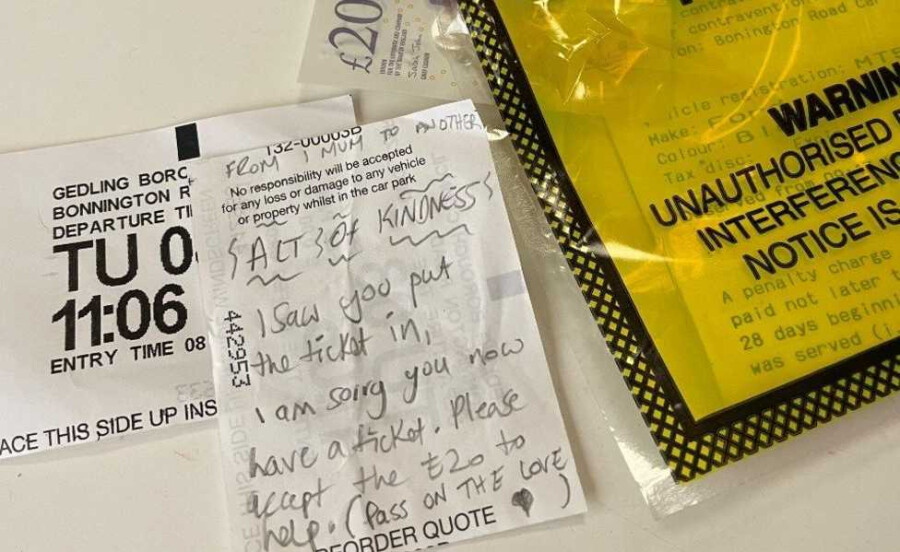 £20
GEDLING BORC
BONNINGTON R
DEPARTURE TI
TU 0
11:06
ENTRY TIME 08
ACE THIS SIDE UP INS
132-00003B
FROM 1 MUM TO ANOTHER
No responsibility will be accepted
for any loss or damage to any vehicle
or property whilst in the car park
ACT OF KINDNESS
442953
I saw you put
the ticket in,
I am sorry you now
have a ticket. Please
accept the £20 to
help. (Pass ON THE LOVE ♥)
REORDER QUOTE
contravention
on: Bonington Road Car
icle registration: MT
Make: FOR
Colour: BL
Tax disc:
WARNIN
UNAUTHORISED
INTERFERENC
NOTICE IS
A penalty charge
paid not later t
28 days beginni
was served (i.